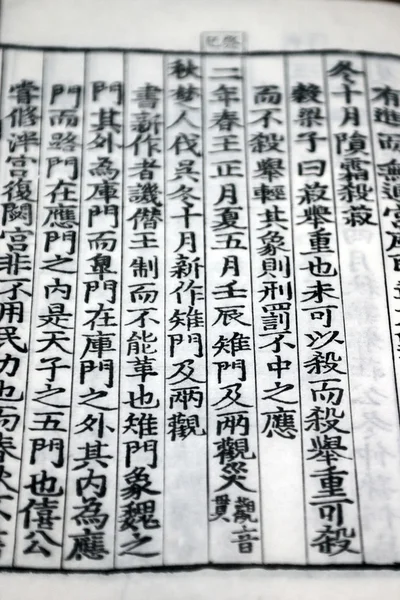 有進而無
冬十月隕霜殺菽
穀梁子曰菽舉重也未可以殺而殺舉重可殺
而不殺舉輕其象則刑罰不中之應
二年春王正月夏五月壬辰雉門及兩觀災觀音貫
秋楚人伐吳冬十月新作雉門及兩觀
書新作者譏僭王制而不能革也雉門象魏之
門其外為庫門而皐門在庫門之外其內為應
門而路門在應門之內是天子之五門也僖公
嘗修泮宮復閟宮非不用民力也而春秋不書